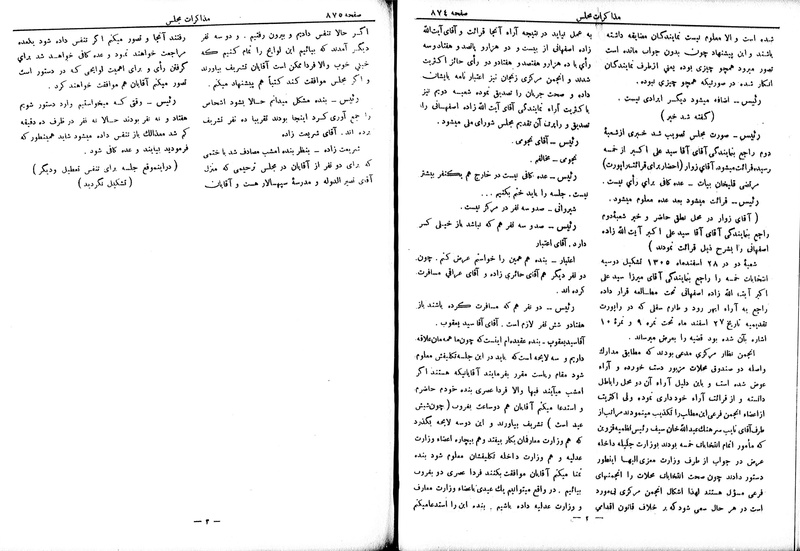 صفحه ۸۷۴
مذاکرات مجلس
شده است و الا معلوم نیست نمایندگان مضایقه داشته
باشند و این پیشنهاد چون بدون جواب مانده است
تصور میرود همچو چیزی بوده یعنی از طرف نمایندگان
انکار شده در صورتیکه همچو چیزی نبوده .
رئیس ــ اضافه میشود دیگر ایرادی نیست .
( گفته شد خیر )
رئیس ــ صورت مجلس تصویب شد خبری از شعبهٔ
دوم راجع بنمایندگی آقای آقا سید علی اکبر از خمسه
رسیده قرائت میشود. آقای زوار (احضار برای قرائت راپورت)
مرتضی قلیخان بیات ــ عده کافی برای رأی نیست .
رئیس ــ قرائت میشود بعد عده معلوم میشود .
( آقای زوار در محل نطق حاضر و خبر شعبهٔ دوم
راجع بنمایندگی آقای آقا سید علی اکبر آیت الله زاده
اصفهانی را بشرح ذیل قرائت نمودند )
شعبهٔ دو در ۲۸ اسفندماه ۱۳۰۵ تشکیل دوسیه
انتخابات خمسه را راجع بنمایندگی آقای میرزا سید علی
اکبر آیت الله زاده اصفهانی تحت مطالعه قرار داده
راجع به آراء ابهر رود و طارم سفلی که در راپورت
تقدیمیه تاریخ ۲۷ اسفند ماه تحت نمره ۹ و نمرهٔ ۱۰
اشاره بآن شده بود قضیه را بعرض میرساند .
انجمن نظار مرکزی مدعی بودند که مطابق مدارک
واصله دو صندوق محلات مزبور دست خورده و آراء
عوض شده است و باین دلیل آراء آن دو محل را باطل
دانسته و از قرائت آراء خودداری نموده ولی اکثریت
از اعضاء انجمن فرعی این مطلب را تکذیب مینمودند مراتب از
طرف آقای نایب سرهنگ عبدالله خان سیف رئیس نظمیه قزوین
که مأمور اتمام انتخابات خمسه بودند بوزارت جلیله داخله
عرض در جواب از طرف وزارت معزی الیها اینطور
دستور دادند چون صحت انتخابات محلات را انجمنهای
فرعی مسؤل هستند لهذا اشکال انجمن مرکزی بی‌مورد
است در هر حال سعی شود که بر خلاف قانون اقدامی
به عمل نیاید در نتیجه آراء آنجا قرائت و آقای آیت الله
زاده اصفهانی از بیست و دو هزار و پانصد و هفتاد و سه
رأی با ده هزار و هفتصد و هفتاد و دو رأی حائز اکثریت
شدند و انجمن مرکزی زنجان نیز اعتبار نامه بایشان
داده و صحت جریان را تصدیق نموده شعبه دویم نیز
با کثریت آراء نمایندگی آقای آیت الله زاده اصفهانی را
تصدیق و راپرت آن تقدیم مجلس شورای ملی میشود .
رئیس ــ آقای نجومی .
نجومی ــ مخالفم .
رئیس ــ عده کافی نیست در خارج هم یکنفر بیشتر
نیست . جلسه را باید ختم بکنیم ...
شیروانی ــ صد و سه نفر در مرکز نیست .
رئیس ــ صد و سه نفر هم که نباشد باز خیلی کسر
دارد . آقای اعتبار
اعتبار ــ بنده هم همین را خواستم عرض کنم . چون
دو نفر دیگر هم آقای حائری زاده و آقای عراقی مسافرت
کرده اند .
رئیس ــ دو نفر هم که مسافرت کرده باشند باز
هفتاد و شش نفر لازم است . آقای آقا سید یعقوب .
آقا سید یعقوب ــ بنده عقیده‌ام اینست که چون ما همه مان علاقه
داریم و سه لایحه است که باید در این جلسه تکلیفش معلوم
شود مقام ریاست مقرر بفرمایند آقایانیکه هستند اگر
امشب میآیند فبها و الا فردا عصری بنده خودم حاضرم
و استدعا میکنم آقایان هم دو ساعت بغروب ( چون شبش
عید است ) تشریف بیاورند و این دو سه لایحه بگذرد
که هم وزارت معارفمان بکار بیفتد و هم بیچاره اعضاء وزارت
عدلیه و هم وزارت داخله تکلیفشان معلوم شود بنده
تمنا میکنم آقایان موافقت بکنند فردا عصری دو بغروب
بیائیم . در واقع میتوانیم یک عیدی باعضاء وزارت معارف
و وزارت عدلیه داده باشیم . بنده این را استدعا میکنم
ــ ۲ ــ
صفحه ۸۷۵
مذاکرات مجلس
اگر حالا تنفس دادیم و بیرون رفتیم . و دو سه نفر
دیگر آمدند که بیائیم این لوایح را تمام کنیم که
خیلی خوب والا فردا ممکن است آقایان تشریف بیاورند
و اگر مجلس موافقت کند کتباً هم پیشنهاد میکنم .
رئیس ــ بنده مشکل میدانم حالا بشود اشخاص
را جمع آوری کرد اینجا بودند تقریبا ده نفر تشریف
برده اند . آقای شریعت زاده
شریعت زاده ــ بنظر بنده امشب مصادف شد با ختمی
که برای دو نفر از آقایان در مجلس ترحیمی که منزل
آقای نصیر الدوله و مدرسهٔ سپهسالار هست و آقایان
رفتند آنجا و تصور میکنم اگر تنفس داده شود بلعده
مراجعت خواهند نمود و عده کافی خواهد شد برای
گرفتن رأی و برای اهمیت لوایحی که در دستور است
تصور میکنم آقایان هم موافقت خواهند کرد .
رئیس ــ وقتی که میخواستیم وارد دستور شویم
هفتاد و نه نفر بودند حالا نه نفر در ظرف ده دقیقه
کم شد معذالک باز تنفس داده میشود شاید همینطور که
فرمودید بیایند و عده کافی شود .
( در اینموقع جلسه برای تنفس تعطیل و دیگر )
( تشکیل نگردید )
ــ ۳ ــ